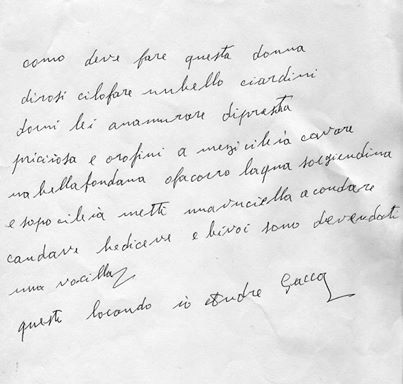 como deve fare questa donna
dirosi cilofare nubello ciardini
dorni lei anamurare dipresta
priciosa e orofini a mezicileià cavare
na bella fondana ofacorro laqua sorgiendina
e sopo cileià metti nnavuciella a condare
candave hediceve e bivoi sono devendati
una vocilla
questi locando io Andre Gacca